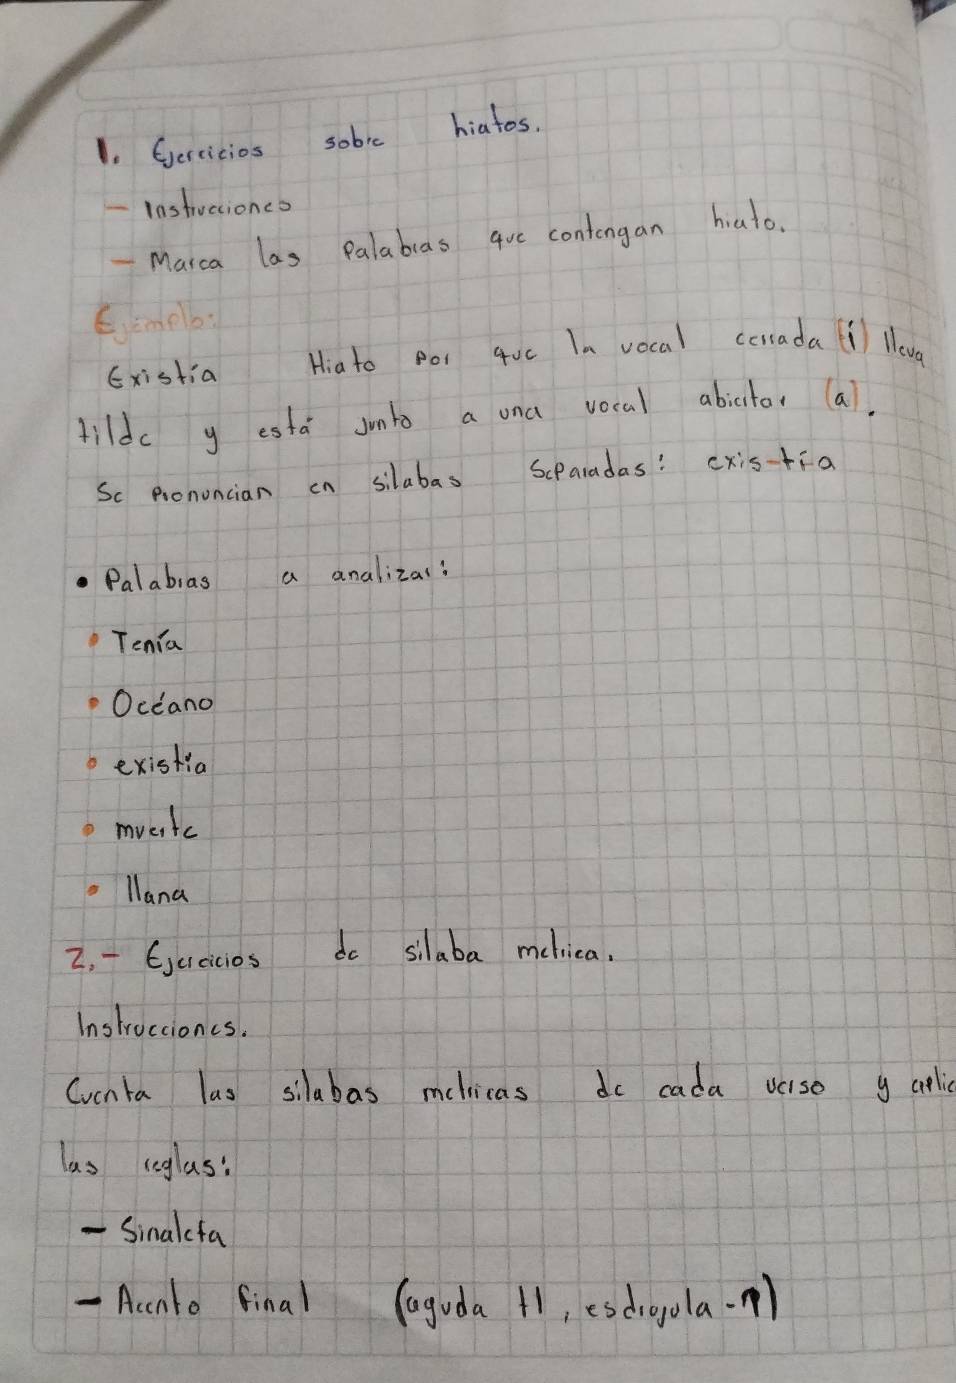 1. Ejercicios sobre hiatos.
- Instrucciones
- Marca las Palabras que contengan hiato.
Ejemplo:
Existía Hiato por que la vocal cerrada (í) lleva
tilde y está junto a una vocal abiertar (a).
Se pronuncian en silabas separadas: exis-tía
• Palabras a analizar:
• Tenía
• Océano
• existía
• muerte
• llana
2.- Ejercicios de silaba metrica.
Instrucciones.
Cuenta las silabas metricas de cada verso y aplic
las reglas:
- Sinalefa
- Acento final (aguda +1, esdrojula -1)